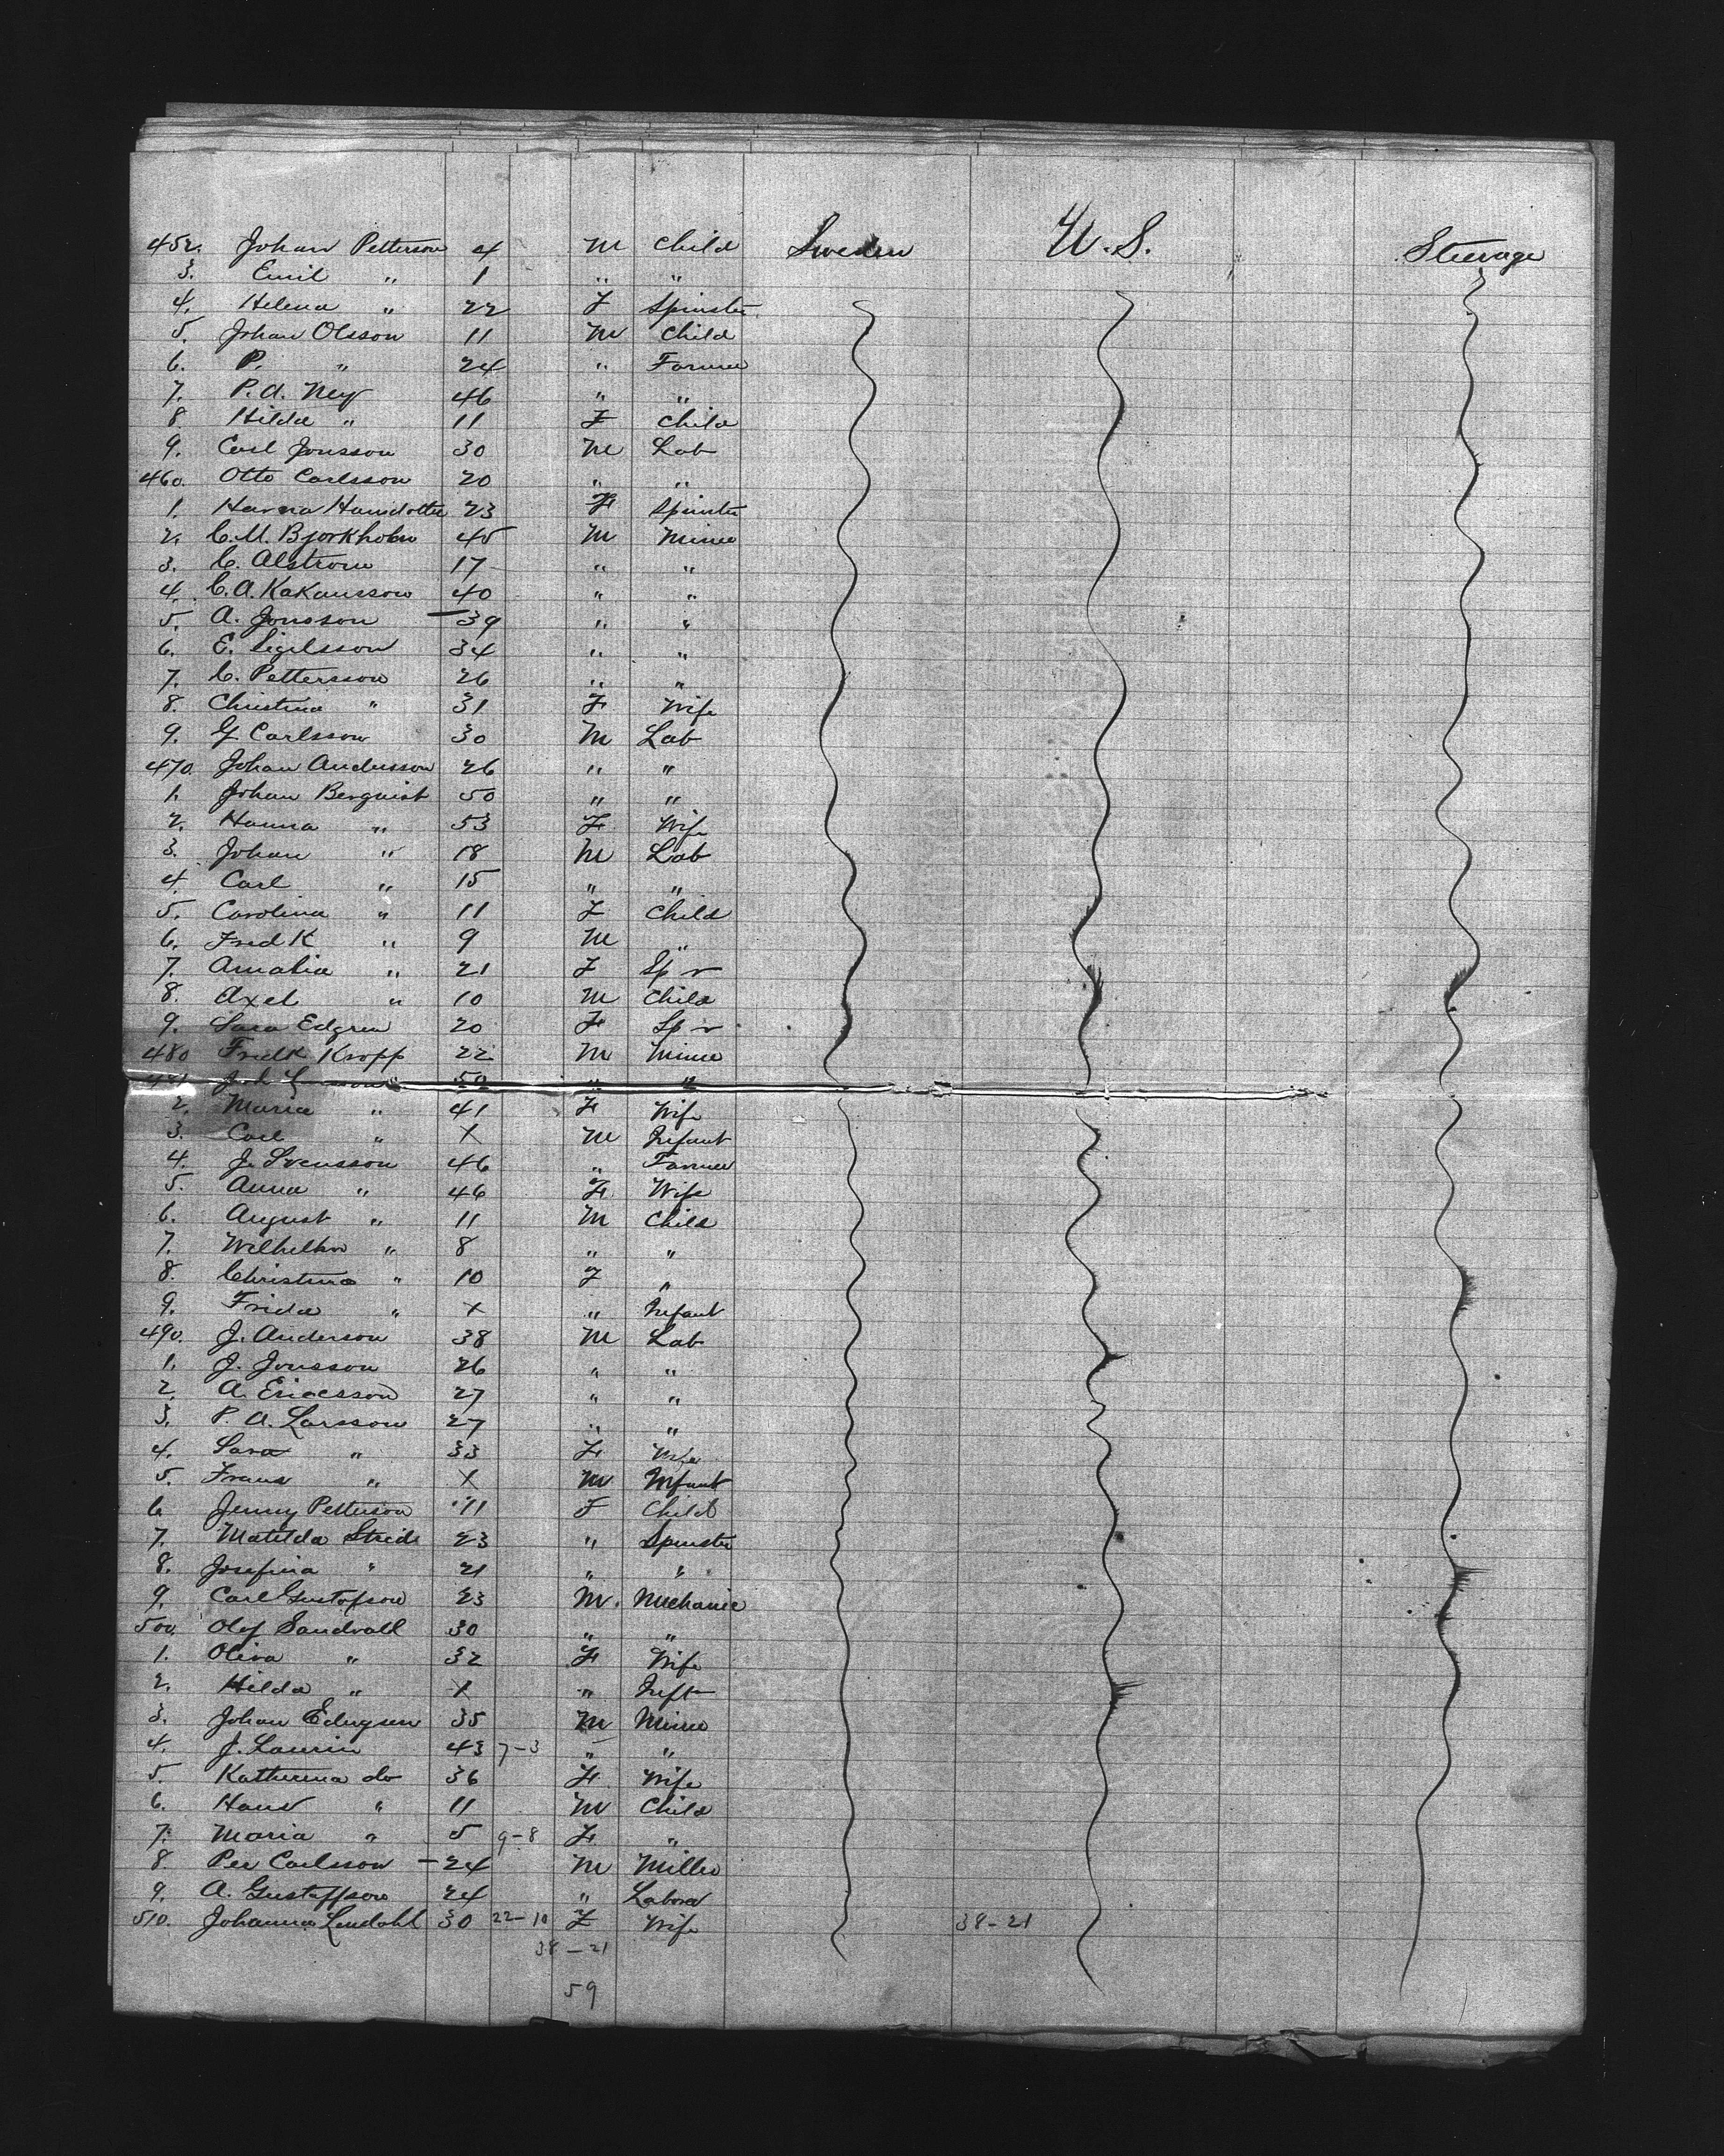 452. Johan Petterson 4 M Child Sweden U.S. Steerage
3. Emil " 1 " "
4. Helena " 22 F Spinster
5. Johan Olsson 11 M Child
6. P. " 24 " Farmer
7. P.A. Ney 46 " "
8. Hilda " 11 F Child
9. Carl Jonsson 30 M Lab
460. Otto Carlsson 20 " "
1. Hanna Hansdotter 23 F Spinster
2. C.M. Bjorkholm 45 M Miner
3. C. Alstrom 17 " "
4. C.A. Kakansson 40 " "
5. A. Jonsson — 39 " "
6. E. Sigelsson 34 " "
7. C. Pettersson 26 " "
8. Christina " 31 F Wife
9. G. Carlsson 30 M Lab
470. Johan Andersson 26 " "
1. Johan Berquist 50 " "
2. Hanna " 53 F Wife
3. Johan " 18 M Lab
4. Carl " 15 " "
5. Carolina " 11 F Child
6. Fredk " 9 M "
7. Amalia " 21 F Sp r
8. Axel " 10 M Child
9. Sara Edgren 20 F Sp r
480 Fredk Kropp 22 M Miner
481 Joh 50 " "
2. Maria " 41 F Wife
3. Carl " X M Infant
4. J. Svensson 46 " Farmer
5. Anna " 46 F Wife
6. August " 11 M Child
7. Wilhelm " 8 " "
8. Christina " 10 F "
9. Frida " X " Infant
490. J. Anderson 38 M Lab
1. J. Jonsson 26 " "
2. A. Ericsson 27 " "
3. P.A. Larsson 27 " "
4. Sara " 33 F Wife
5. Frans " X M Infant
6 Jenny Petterson 11 F Child
7. Matilda Stride 23 " Spinster
8. Josefina " 21 " "
9. Carl Gustafson 23 M. Mechanic
500. Olof Sandvall 30 " "
1. Oliva " 32 F Wife
2. Hilda " X " Inft
3. Johan 35 M Miner
4. J. Laurin 43 7-3 " "
5. Katherina do 36 F Wife
6. Hans " 11 M Child
7. Maria " 5 9-8 F "
8. Per Carlsson — 24 M Miller
9. A. Gustaffson 24 " Labord
510. Johanna Lindahl 30 22-10 F Wife 38-21
38-21
59